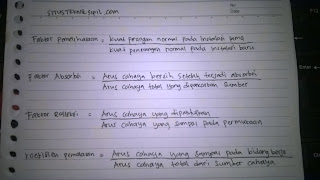 SITUSTEKNIKSIPIL.COM
No.
Date
Faktor Pemeliharaan = kuat perangan normal pada instalasi lama
kuat penerangan normal pada instalasi baru
Faktor Absorbsi = Arus cahaya bersih setelah terjadi absorbsi
Arus cahaya total yang dipancarkan sumber
Faktor Refleksi = Arus cahaya yang dipantulkan
Arus cahaya yang sampai pada permukaan
Koefisien pemakaian = Arus cahaya yang sampai pada bidang kerja
Arus cahaya total dari sumber cahaya